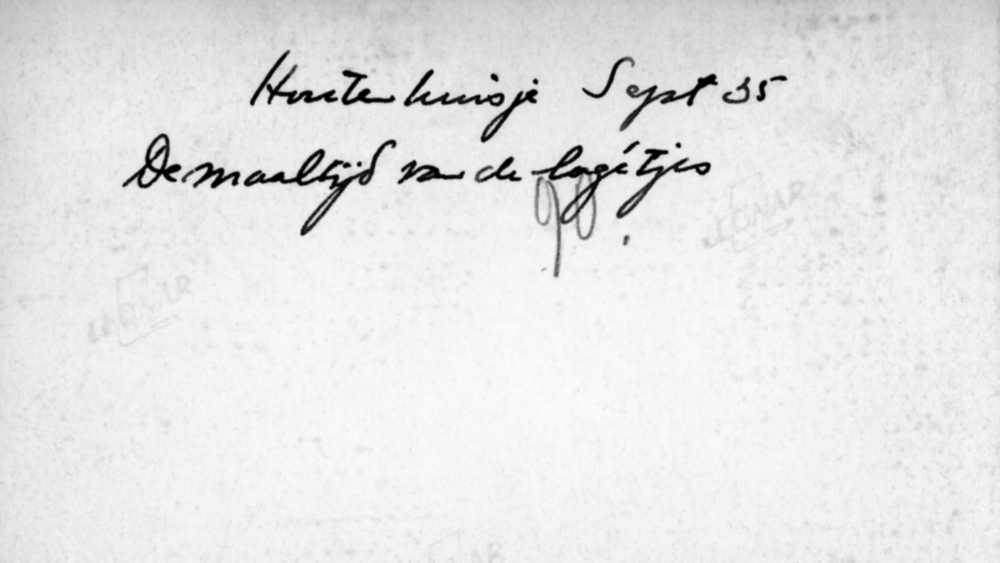 Houten huisje Sept 35
De maaltijd van de logétjes
LEONAR
LEONAR